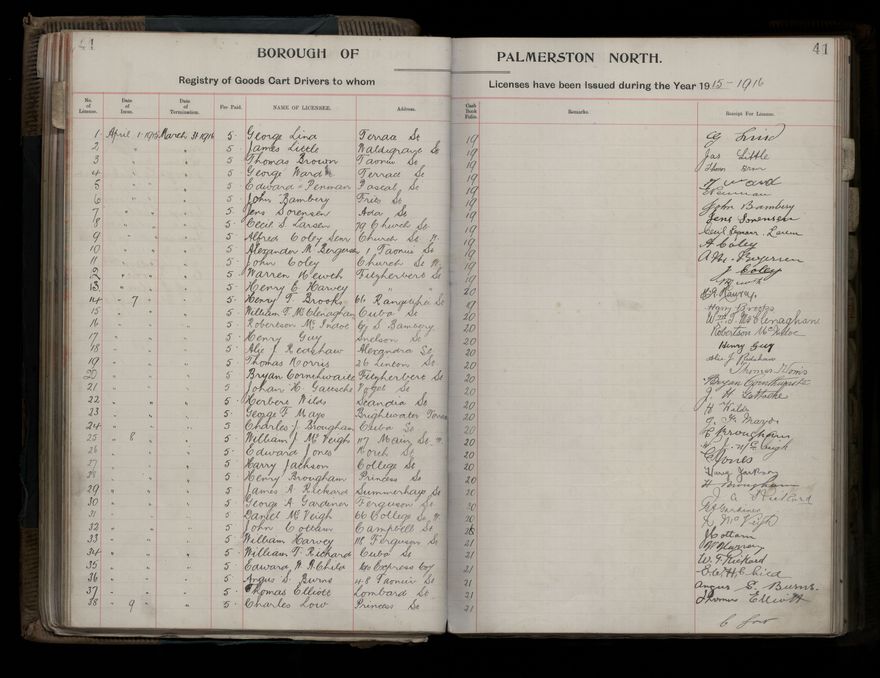 41 41
BOROUGH OF PALMERSTON NORTH.
Registry of Goods Cart Drivers to whom Licenses have been Issued during the Year 1915-1916
No. of License. Date of Issue. Date of Termination. Fee Paid. NAME OF LICENSEE. Address. Cash Book Folio. Remarks. Receipt For License.
1 April 1 1915 March 31 1916 5 George Lind Terrace St 19 G Lind
2 " " 5 James Little Waldegrave St 19 Jas Little
3 " " 5 Thomas Brown Taonui St 19 Thom Brn
4 " " 5 George Ward Terrace St 19 G Ward
5 " " 5 Edward Penman Pascal St 19 E Penman
6 " " 5 John Bambery St 19 John Bambery
7 " " 5 Jens Sorensen Ada St 19 Jens Sorensen
8 " " 5 Cecil S Larsen 79 Church St 19 Cecil Larsen
9 " " 5 Alfred Coley Senr Church St W. 19 A Coley
10 " " 5 Alexander M Bergersen 1 Taonui St 19
11 " " 5 John Coley Church St W. 19 J Coley
12 " " 5 Warren Fitzherbert St 19
13 " " 5 Henry E Harvey " " 20
14 " 7 " 5 Henry T Brooks Rangitikei St 19 Harry Brooks
15 " " 5 William F. McClenaghan Cuba St 20 Wm F. McClenaghan
16 " " 5 Robertson McIndoe 67 S Bambery 20 Robertson McIndoe
17 " " 5 Henry Guy Snelson St 20 Henry Guy
18 " " 5 Alic J Redshaw Alexandra St 20 Alic J Redshaw
19 " " 5 Thomas Norris 26 Linton St 20 Thomas Norris
20 " " 5 Bryan Cornthwaite Fitzherbert St 20 Bryan Cornthwaite
21 " " 5 Johan H. Vogel St 20 J H
22 " " 5 Herbert Wilds Scandia St 20 H Wilds
23 " " 5 George F Mayo Brightwater Terrace 20 G. F. Mayo
24 " " 5 Charles J Brougham Cuba St 20 C Brougham
25 " 8 " 5 William J McVeigh 117 Main St W. 20
26 " " 5 Edward Jones North St 20 E Jones
27 " " 5 Harry Jackson College St 20 Harry Jackson
28 " " 5 Henry Brougham Princess St 20 H Brougham
29 " " 5 James A Rickard Summerhays St 20 J A Rickard
30 " " 5 George A Gardener Ferguson St 20
31 " " 5 Daniel McVeigh 66 College St W. 20 D McVeigh
32 " " 5 John Cottam Campbell St 20 J Cottam
33 " " 5 William Harvey 111 Ferguson St 21 W Harvey
34 " " 5 William F. Rickard Cuba St 21 W. F. Rickard
35 " " 5 Edward W H Child Co Express Coy 21 Child
36 " " 5 Angus S Burns 48 Taonui St 21 Angus S. Burns.
37 " " 5 Thomas Elliott Lombard St 21 Thomas Elliott
38 " 9 " 5 Charles Low Princess St 21 C Low